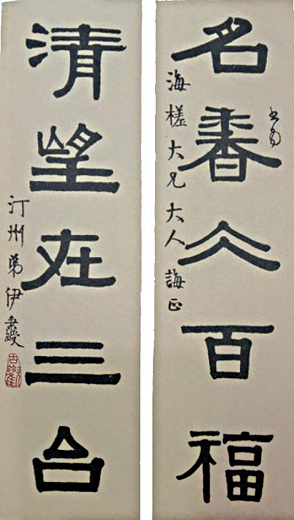 名香百福
書為
海槎大兄大人誨正
清望在三台
汀州弟伊秉綬